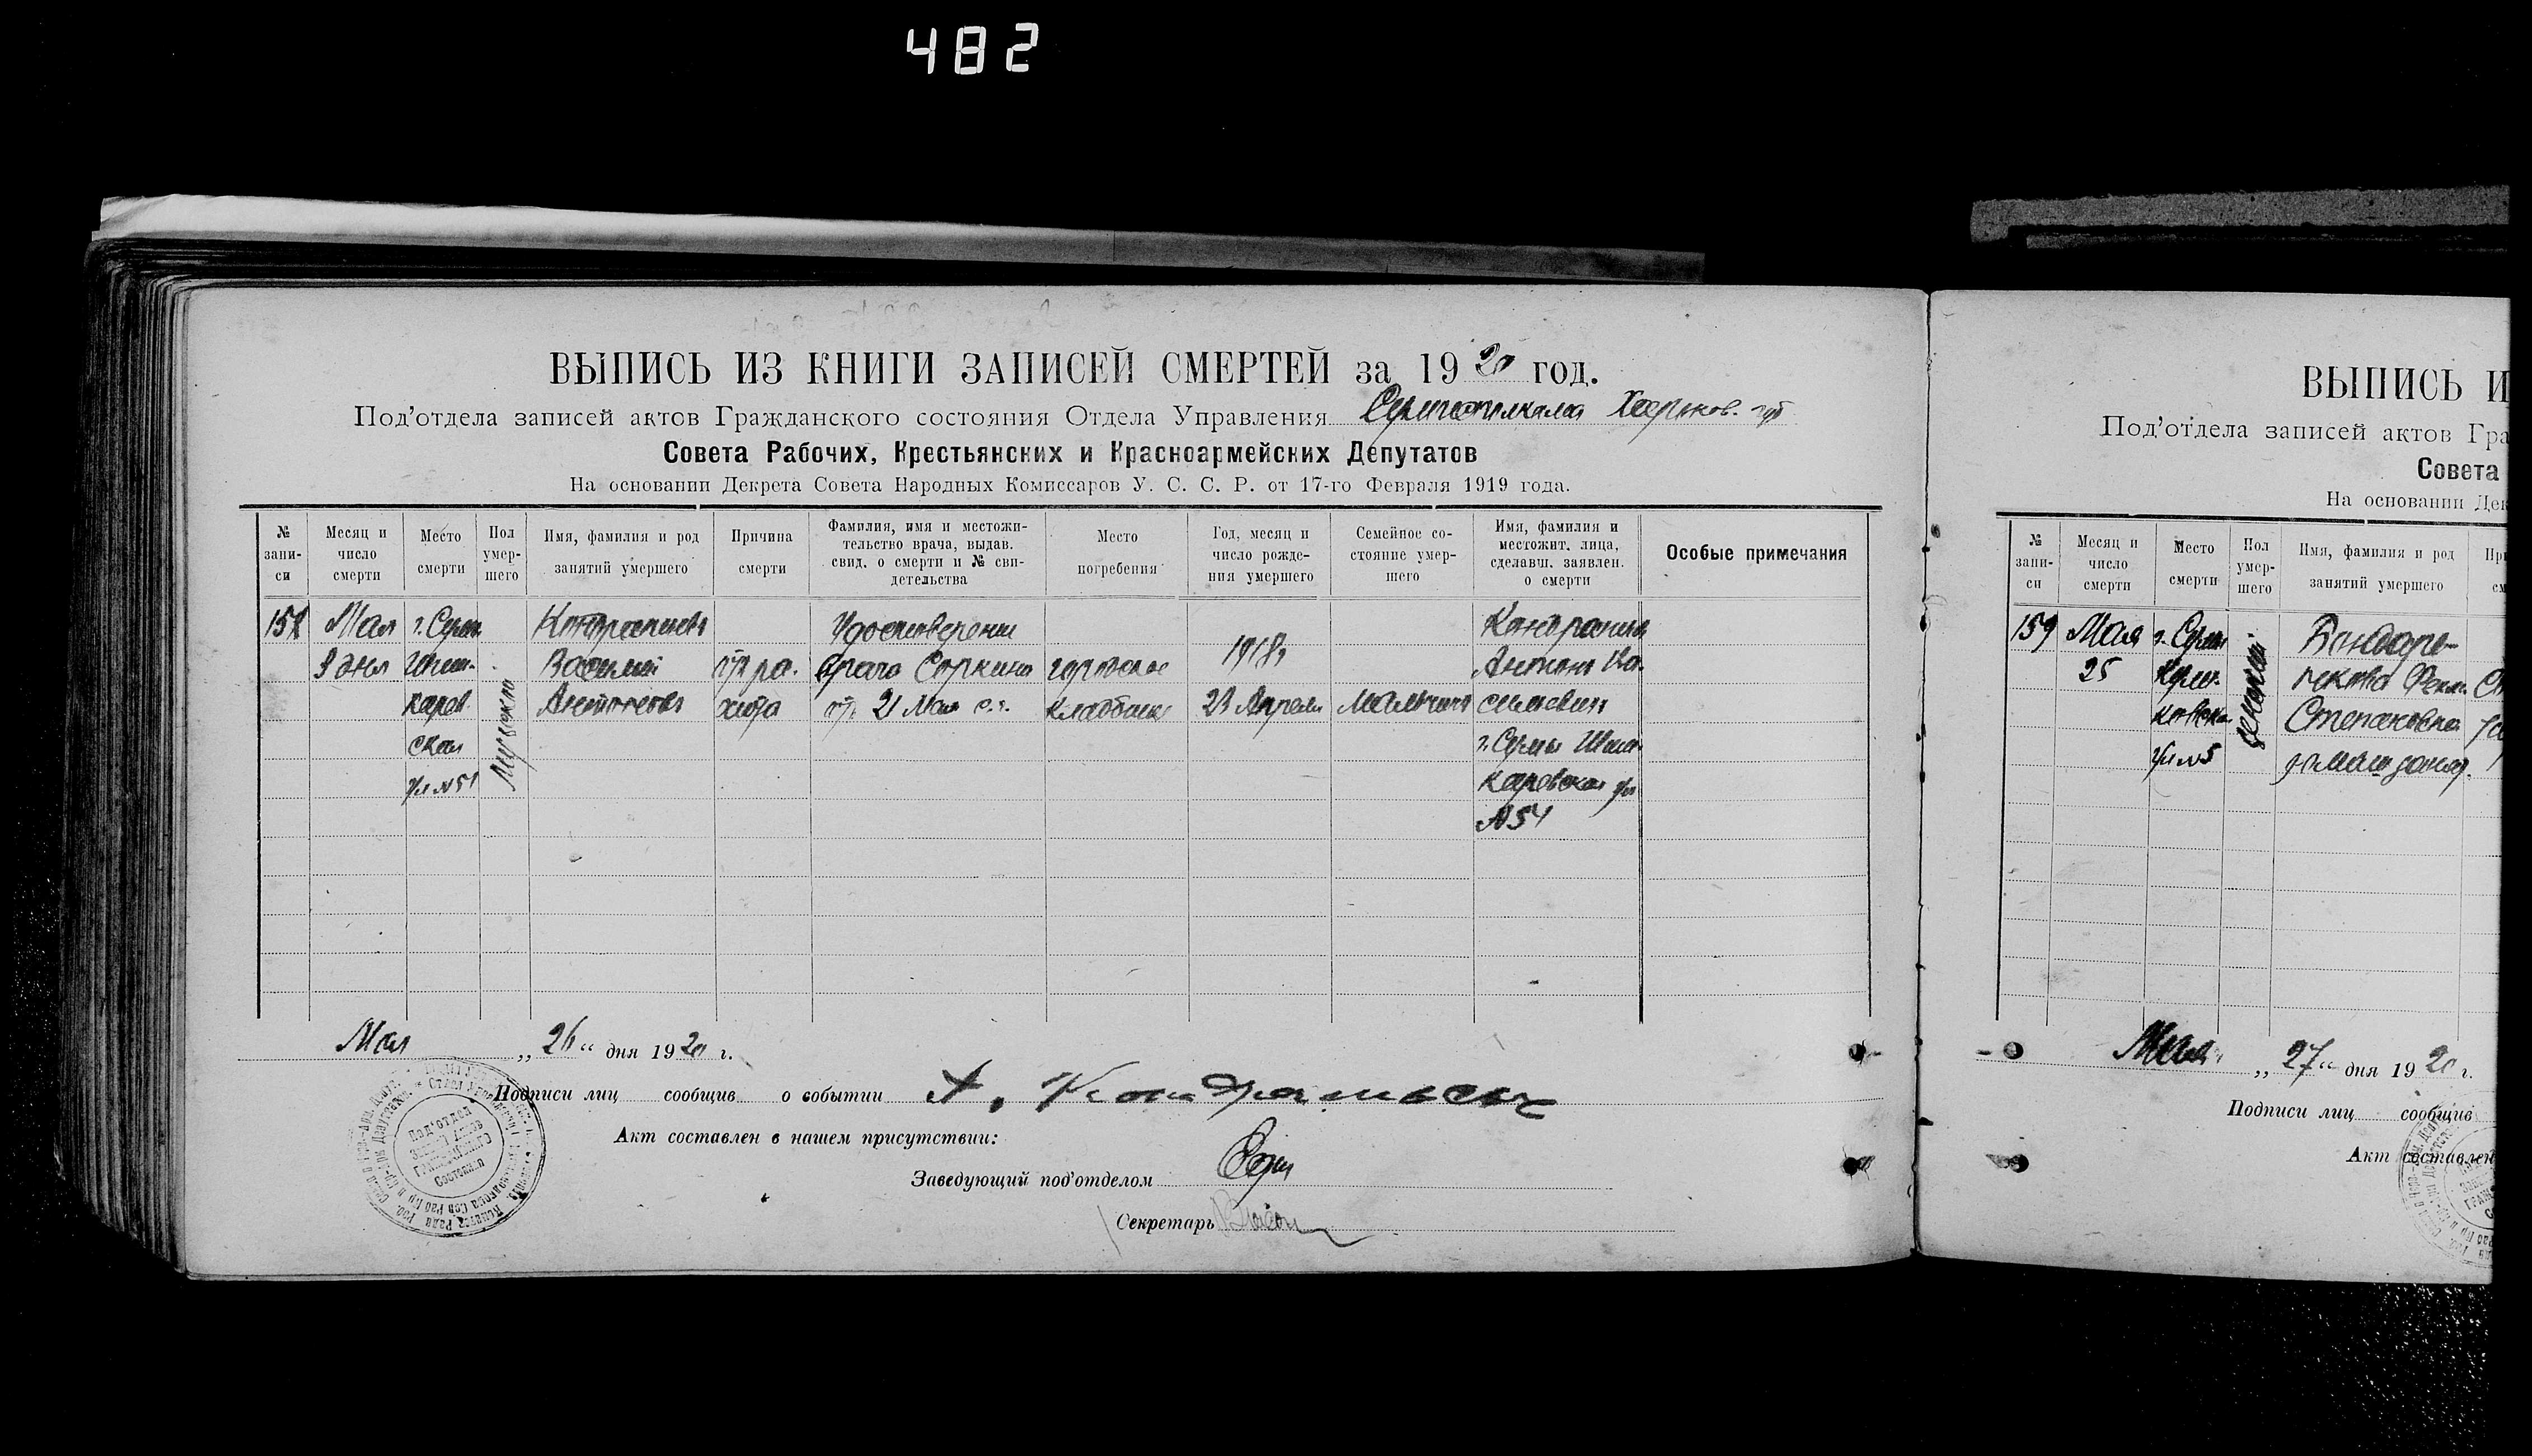 482
ВЫПИСЬ ИЗ КНИГИ ЗАПИСЕЙ СМЕРТЕЙ за 1920 год.
Под'отдела записей актов Гражданского состояния Отдела Управления Харьков. губ
Совета Рабочих, Крестьянских и Красноармейских Депутатов
На основании Декрета Совета Народных Комиссаров У. С. С. Р. от 17-го Февраля 1919 года.
№ запи-си
Месяц и число смерти
Место смерти
Пол умер-шего
Имя, фамилия и род занятий умершего
Причина смерти
Фамилия, имя и местожи-тельство врача, выдав. свид. о смерти и № сви-детельства
Место погребения
Год, месяц и число рожде-ния умершего
Семейное со-стояние умер-шего
Имя, фамилия и местожит. лица, сделавш. заявлен. о смерти
Особые примечания
158
Мая
дня
г. Сумы
карев
ская
ул №51
Мужеского
Кондратьев
Василий
Антонов
от ра-
хита
Удостоверение
врача Соркина
от 21 Мая с.г.
городское
кладбище
1918 г
23 Апреля
Мальчик
Кондратьев
Антон Ва-
сильевич
г. Сумы
каревская ул
№54
Мая „26“ дня 1920 г.
Подписи лиц сообщив о событии А. Кондратьев
Акт составлен в нашем присутствии:
Заведующий под'отделом
Секретарь
Под'отдел
ЗАПИСИ АКТОВ
ГРАЖДАНСКОГО
Состояния
ВЫПИСЬ И
Под'отдела записей актов Гра
Совета
На основании Дек
№ запи-си
Месяц и число смерти
Место смерти
Пол умер-шего
Имя, фамилия и род занятий умершего
159
Мая
25
г. Сумы
ул №5
женский
Бондаре-
Степановна
Мая „27“ дня 1920 г.
Подписи лиц сообщив
Акт составлен